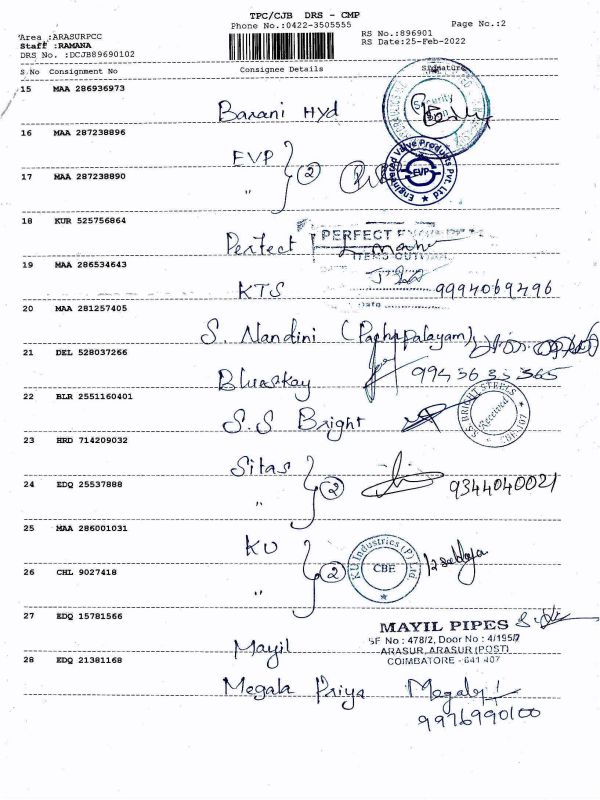 TPC/CJB DRS - CMP
Phone No.:0422-3505555
Page No.:2
Area :ARASURPCC
Staff :RAMANA
DRS No. :DCJB89690102
RS No.:896901
RS Date:25-Feb-2022
S.No Consignment No Consignee Details Signature
15 MAA 286936973
Barani Hyd
Security
16 MAA 287238896
EVP
2
17 MAA 287238890
"
Engineered Valve Products Pvt. Ltd
EVP
18 KUR 525756864
Perfect
PERFECT
19 MAA 286534643
KTS
9994069496
Date
20 MAA 281257405
S. Nandini (Pappapalayam)
21 DEL 528037266
Blueskay
9943633365
22 BLR 2551160401
S.S Bright
S.S. BRIGHT STEELS
Received
23 HRD 714209032
Sitas
2
9344040021
24 EDQ 25537888
"
25 MAA 286001031
KU
2
KU Industries (P) Ltd.
CBE
26 CHL 9027418
"
27 EDQ 15781566
Mayil
MAYIL PIPES
SF No : 478/2, Door No : 4/195/7
ARASUR, ARASUR (POST)
COIMBATORE - 641 407
28 EDQ 21381168
Megala Priya
9976990100